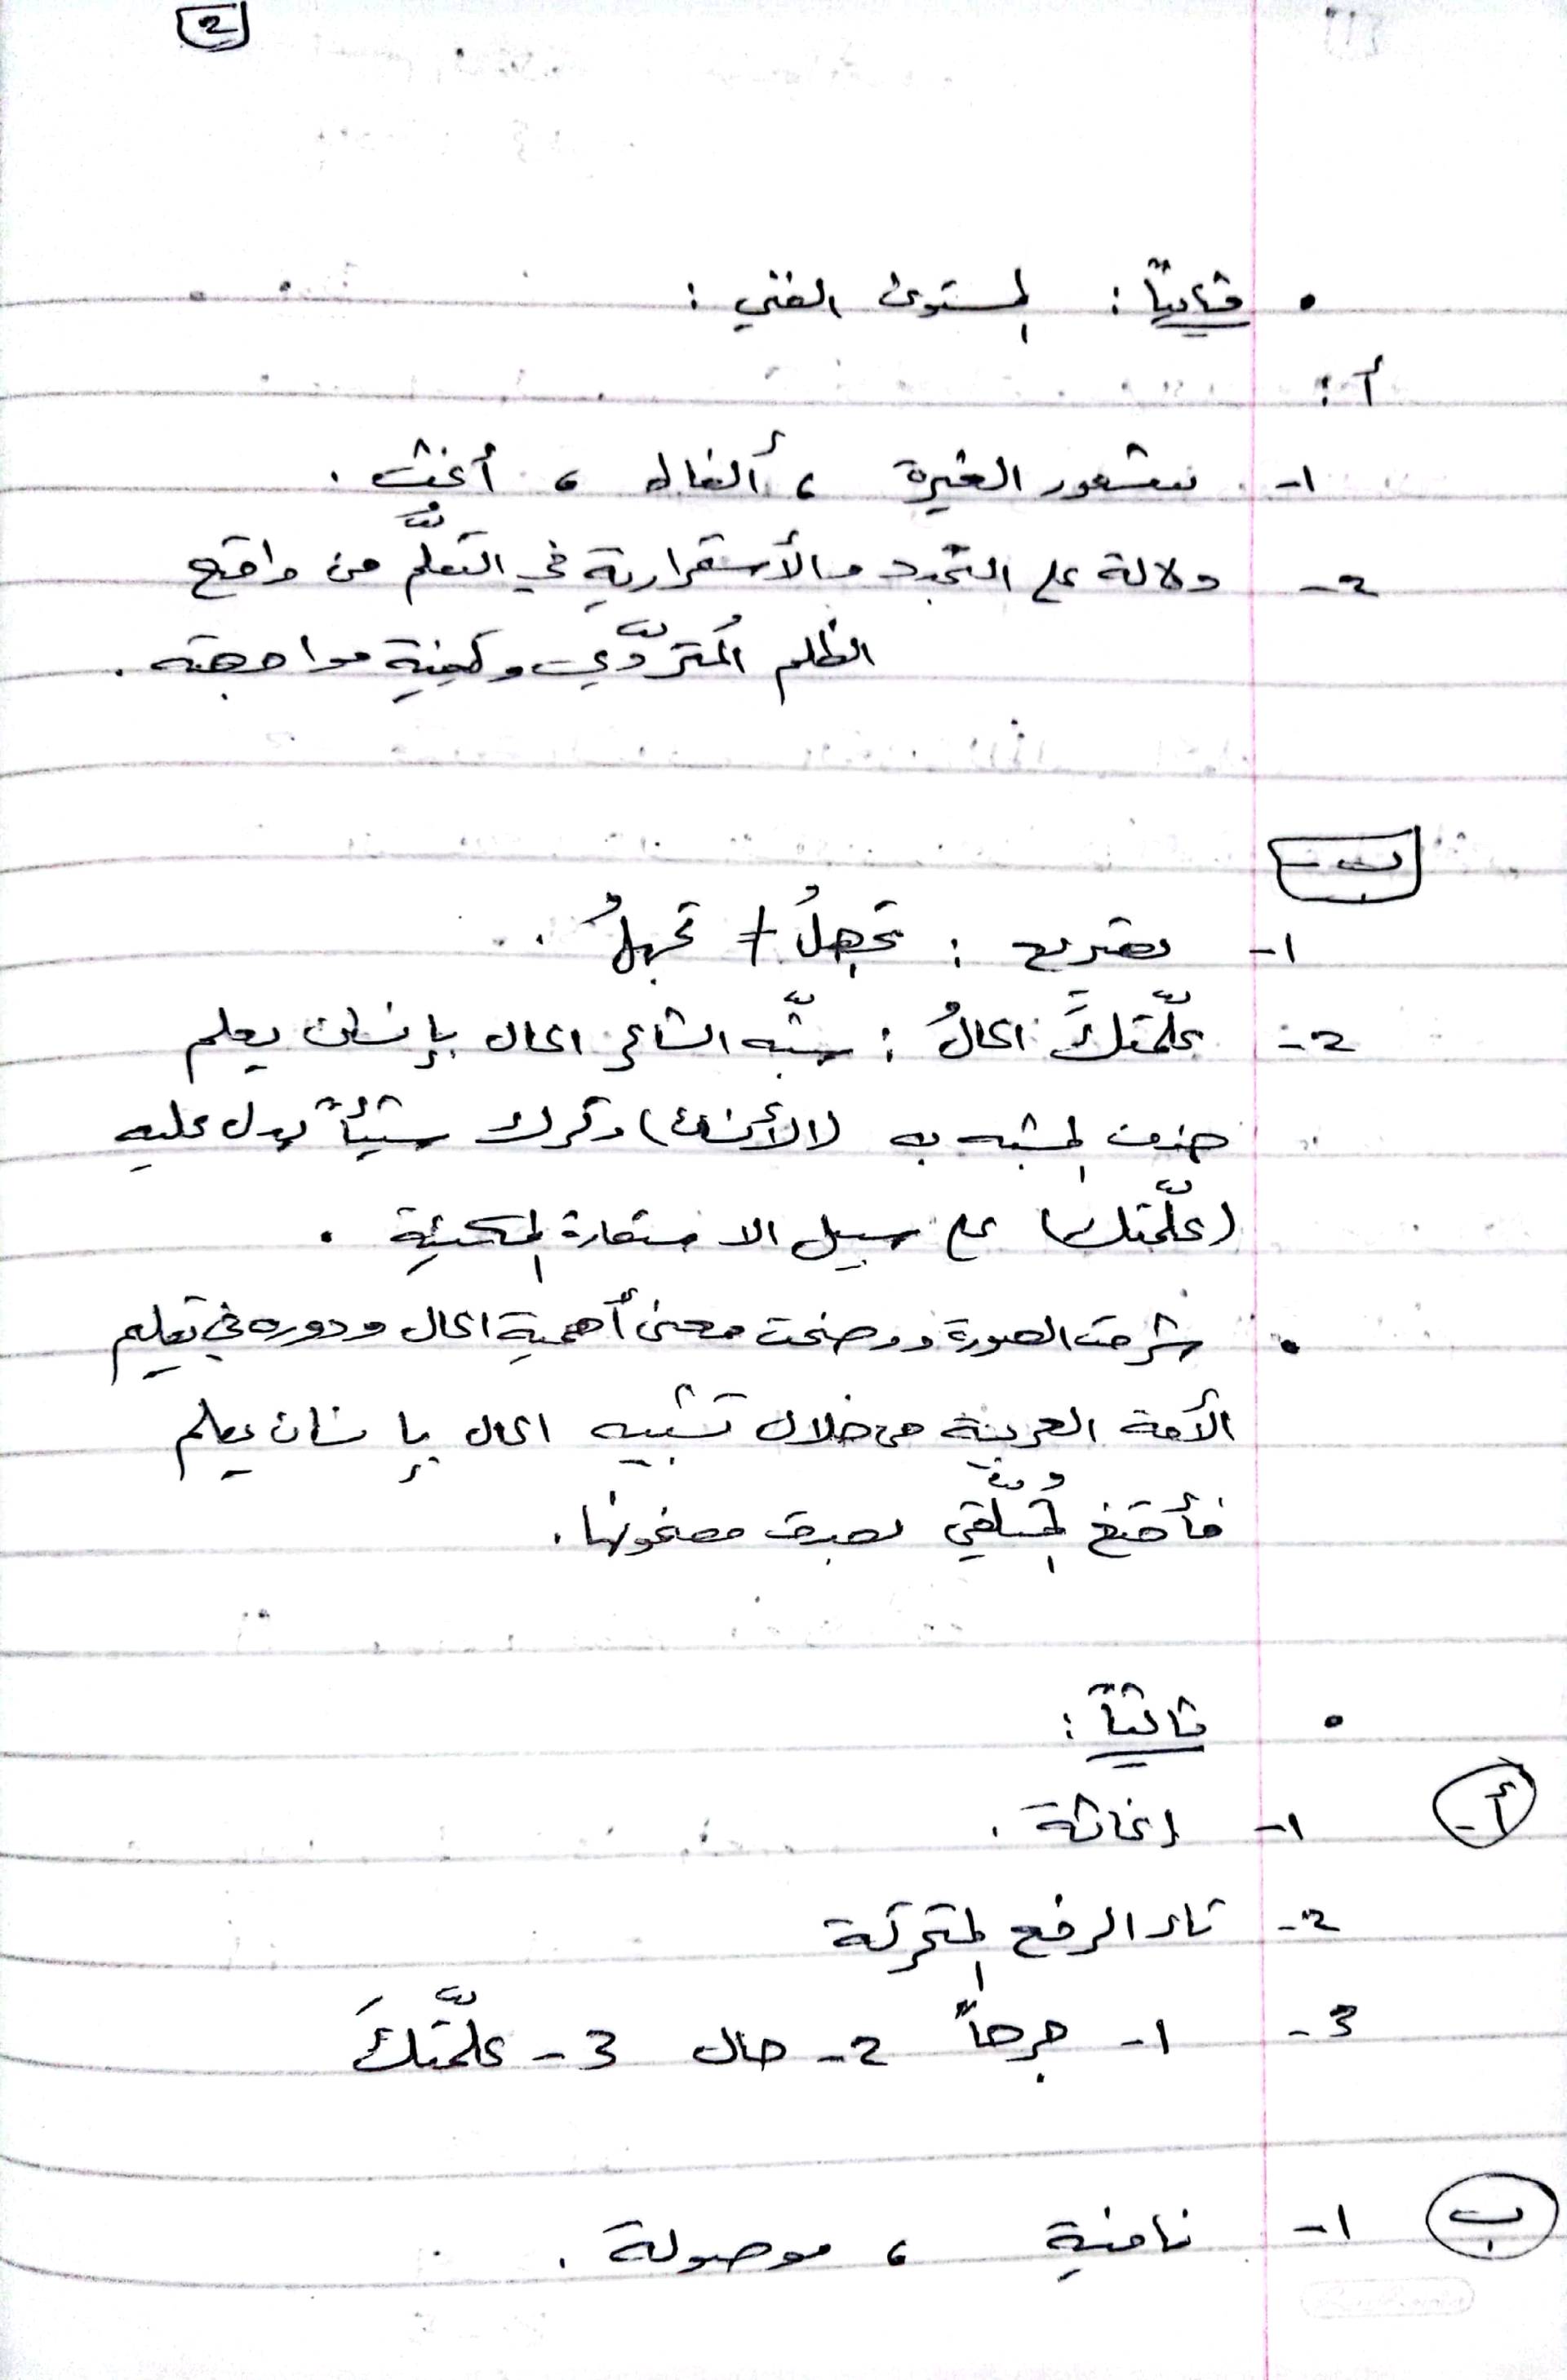 2
• ثانياً : المستوى الفني :
أ :
1- شعور الغيرة ، ألفاظ ، أغثتُ .
2- دلالة على التجدد والأستمرارية في التعلّم من واقع
الظلم المُتردّي وكيفية مواجهته .
ب
1- تصريع : تجهلُ
2- علّمتكَ الحالُ : شبّه الشاعر الحال بإنسان يعلم
حذف المشبه به (الأنسان) وترك شيئاً يدل عليه
(علّمتك) على سبيل الاستعارة المكنية .
• شرحت الصورة ووضحت معنى أهمية الحال ودوره في تعليم
الأمة العربية من خلال تشبيه الحال بإنسان يعلم
فأقنع المُتلّقي بصدق مضمونها .
• ثالثاً :
أ- 1- إغاثة .
2- تاء الرفع المتحركة
3- 1- جرحاً 2- حال 3- علّمتكَ
ب 1- نافية ، موصولة .